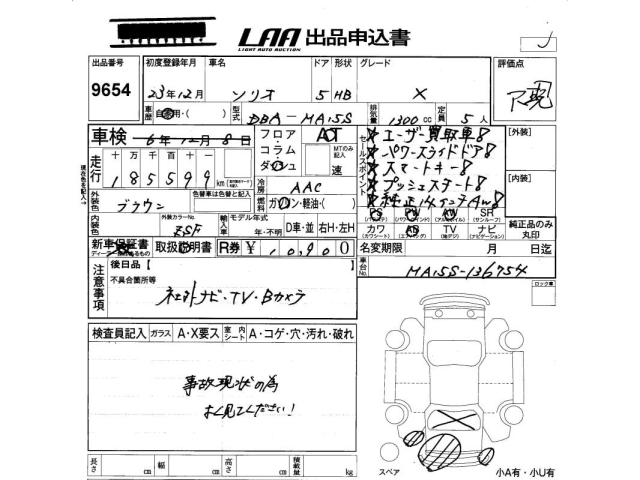 LAA 出品申込書
LIGHT AUTO AUCTION
出品番号 初度登録年月 車名 ドア 形状 グレード 評価点
9654 23年12月 ソリオ 5 HB X
車歴 自家用・( ) 型式 DBA-MA15S 排気量 1300 cc 定員 5人
車検 6年12月8日 フロア コラム ダッシュ ACT MTのみ記入 速
セールスポイント
★ユーザー買取車!!
★パワースライドドア!!
★スマートキー!!
★プッシュスタート!!
★純正14インチAW!!
[外装]
[内装]
走行 十万千百十一
185599 km
冷房 AAC
外装色 ブラウン 色替車は色替と記入 燃料 ガソリン・軽油・( )
PS PW AW SR
内装色 外装カラーNo. ZSF 輸入車 モデル年式 年・不明 D車・並 右H・左H
カワ AB TV ナビ
純正品のみ丸印
新車保証書 取扱説明書 R券 ¥10,900 名変期限 月 日迄
車台No. MA15S-136754
ロック車
注意事項 後日品【
不具合箇所等
社外ナビ・TV・Bカメラ
検査員記入 ガラス A・X要ス 室内シート A・コゲ・穴・汚れ・破れ
事故現状の為
よく見てください!
長さ cm 幅 cm 高さ cm 積載量 kg
スペア 小A有・小U有